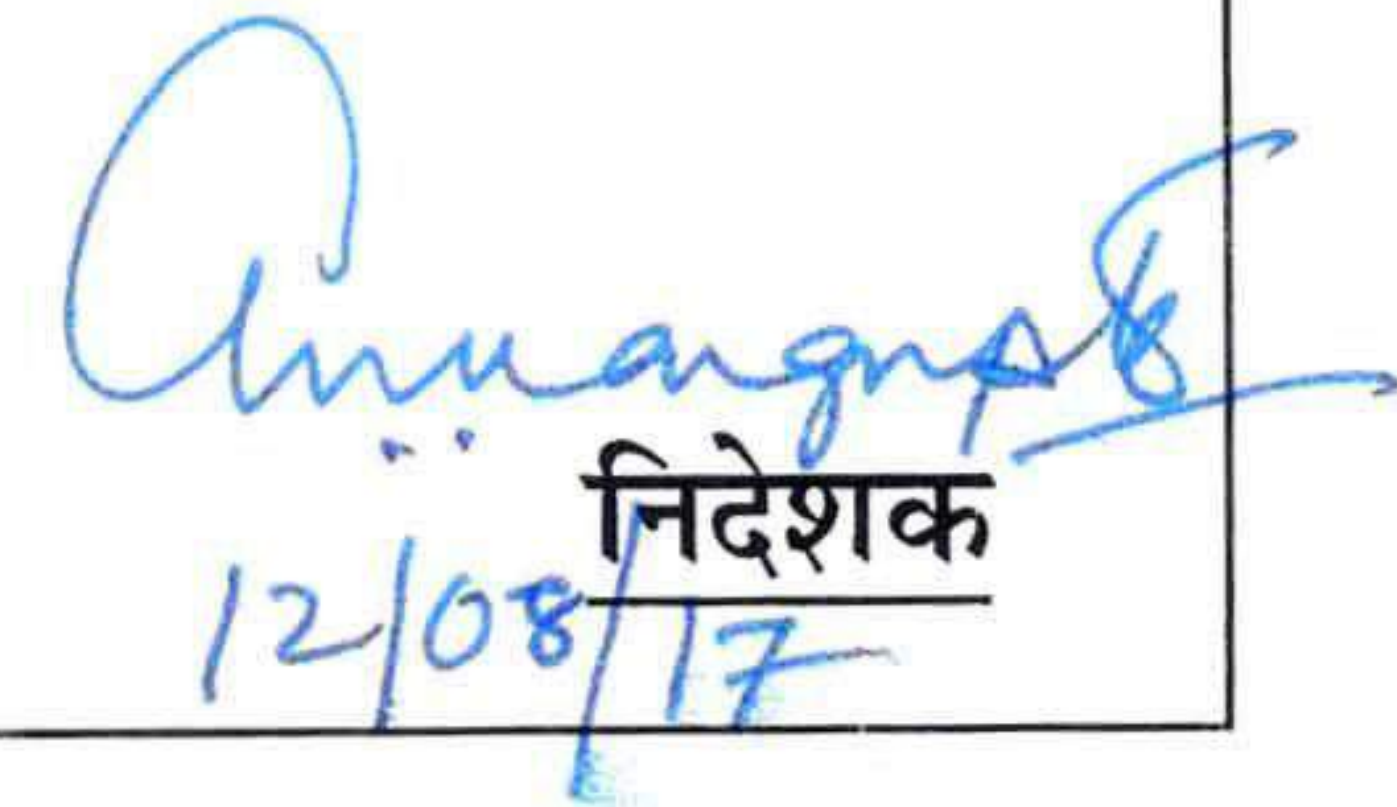 निदेशक
12/08/17